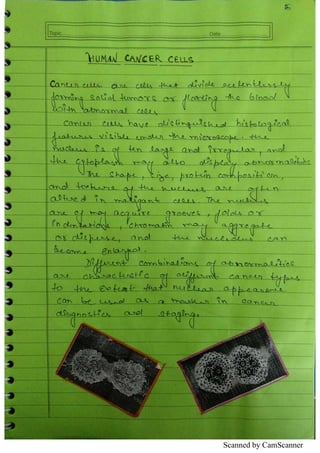 5
Topic
Date
HUMAN CANCER CELLS
Cancer cells are cells that divide relentlessly
forming solid tumors or flooding the blood
with abnormal cells
Cancer cells have distinguished histological
features visible under the microscope. The
nucleus is often large and irregular, and
the cytoplasm may also display abnormalities
The shape, size, protein composition,
and texture of the nucleus are often
altered in malignant cells. The nucleus
are of may acquire grooves, folds or
indentations, chromatin may aggregate
or disperse, and the nucleolus can
become enlarged.
Different combinations of abnormalities
are characteristic of different cancer types
to the extent that nuclear appearance
can be used as a marker in cancer
diagnostics and staging.
Scanned by CamScanner